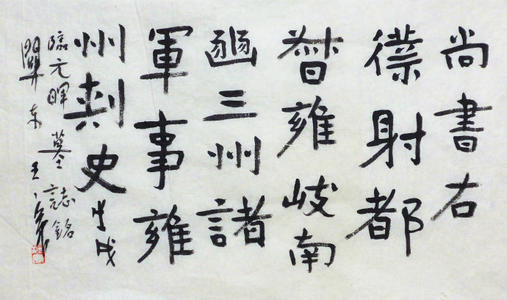 尚書右
僕射都
督雍岐南
豳三州諸
軍事雍
州刺史戊戌
臨元暉墓誌銘
關東王